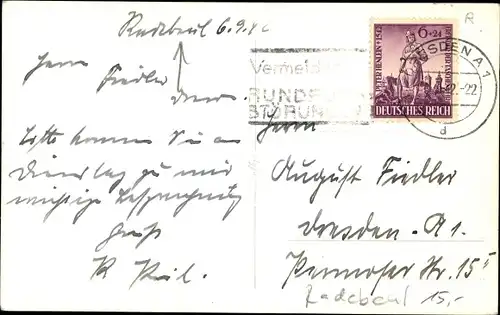 Radebeul 6.9.42
Herrn Fiedler
Dresden.
Bitte kommen Sie am
Dienstag zu mir
wichtige Besprechung
Gruß
R
6+24
DEUTSCHES REICH
Vermeidet
RUNDFUNK
STÖRUNGEN
DRESDEN A 1
-22
d
Herrn
August Fiedler
Dresden - A 1.
Str. 15 II
Radebeul 15,-
R